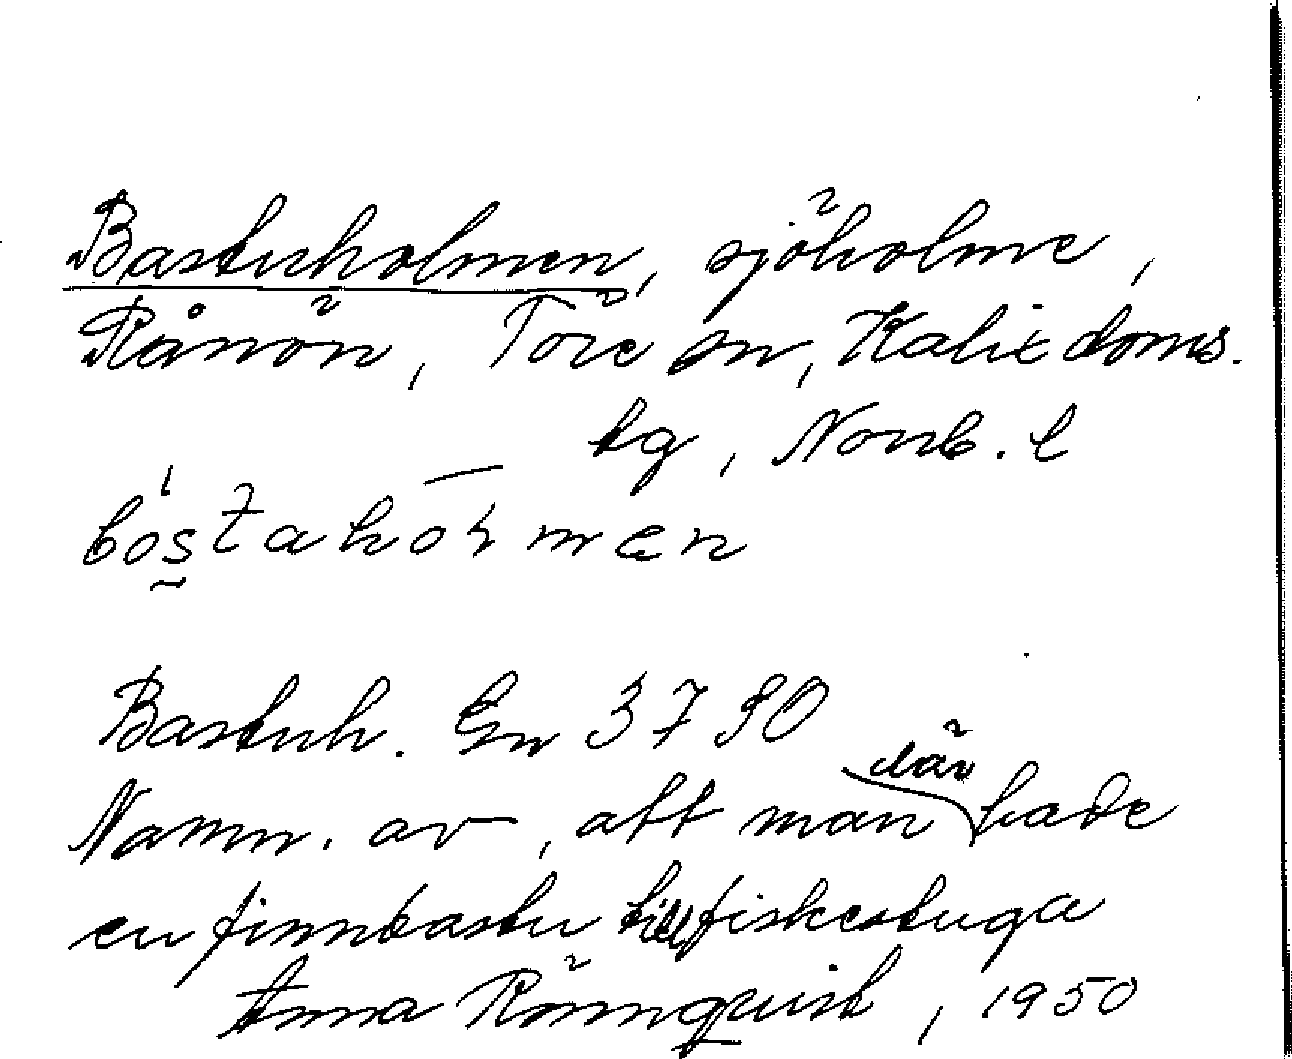 Bastuholmen, sjöholme,
Rånön, Töre sn, Kalix doms.
tg, Norrb. l
bos̰taholmen
Bastuh. Gn 3790
Namn. av, att man där hade
en finnbastu till fiskestuga
Anna Rönnquist, 1950